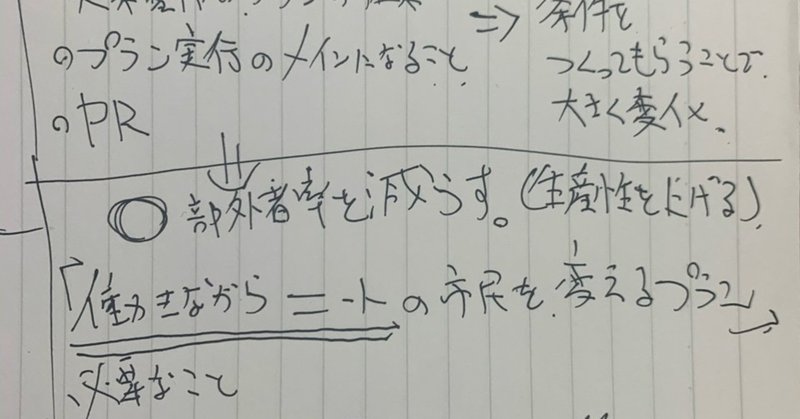 のプラン実行のメインになること
のPR
⇒ 条件を
つくってもらうことで.
大きく変化.
○ 部外者率を減らす。(生産性を上げる).
「働きながらニートの市民を変えるプラン」→
必要なこと